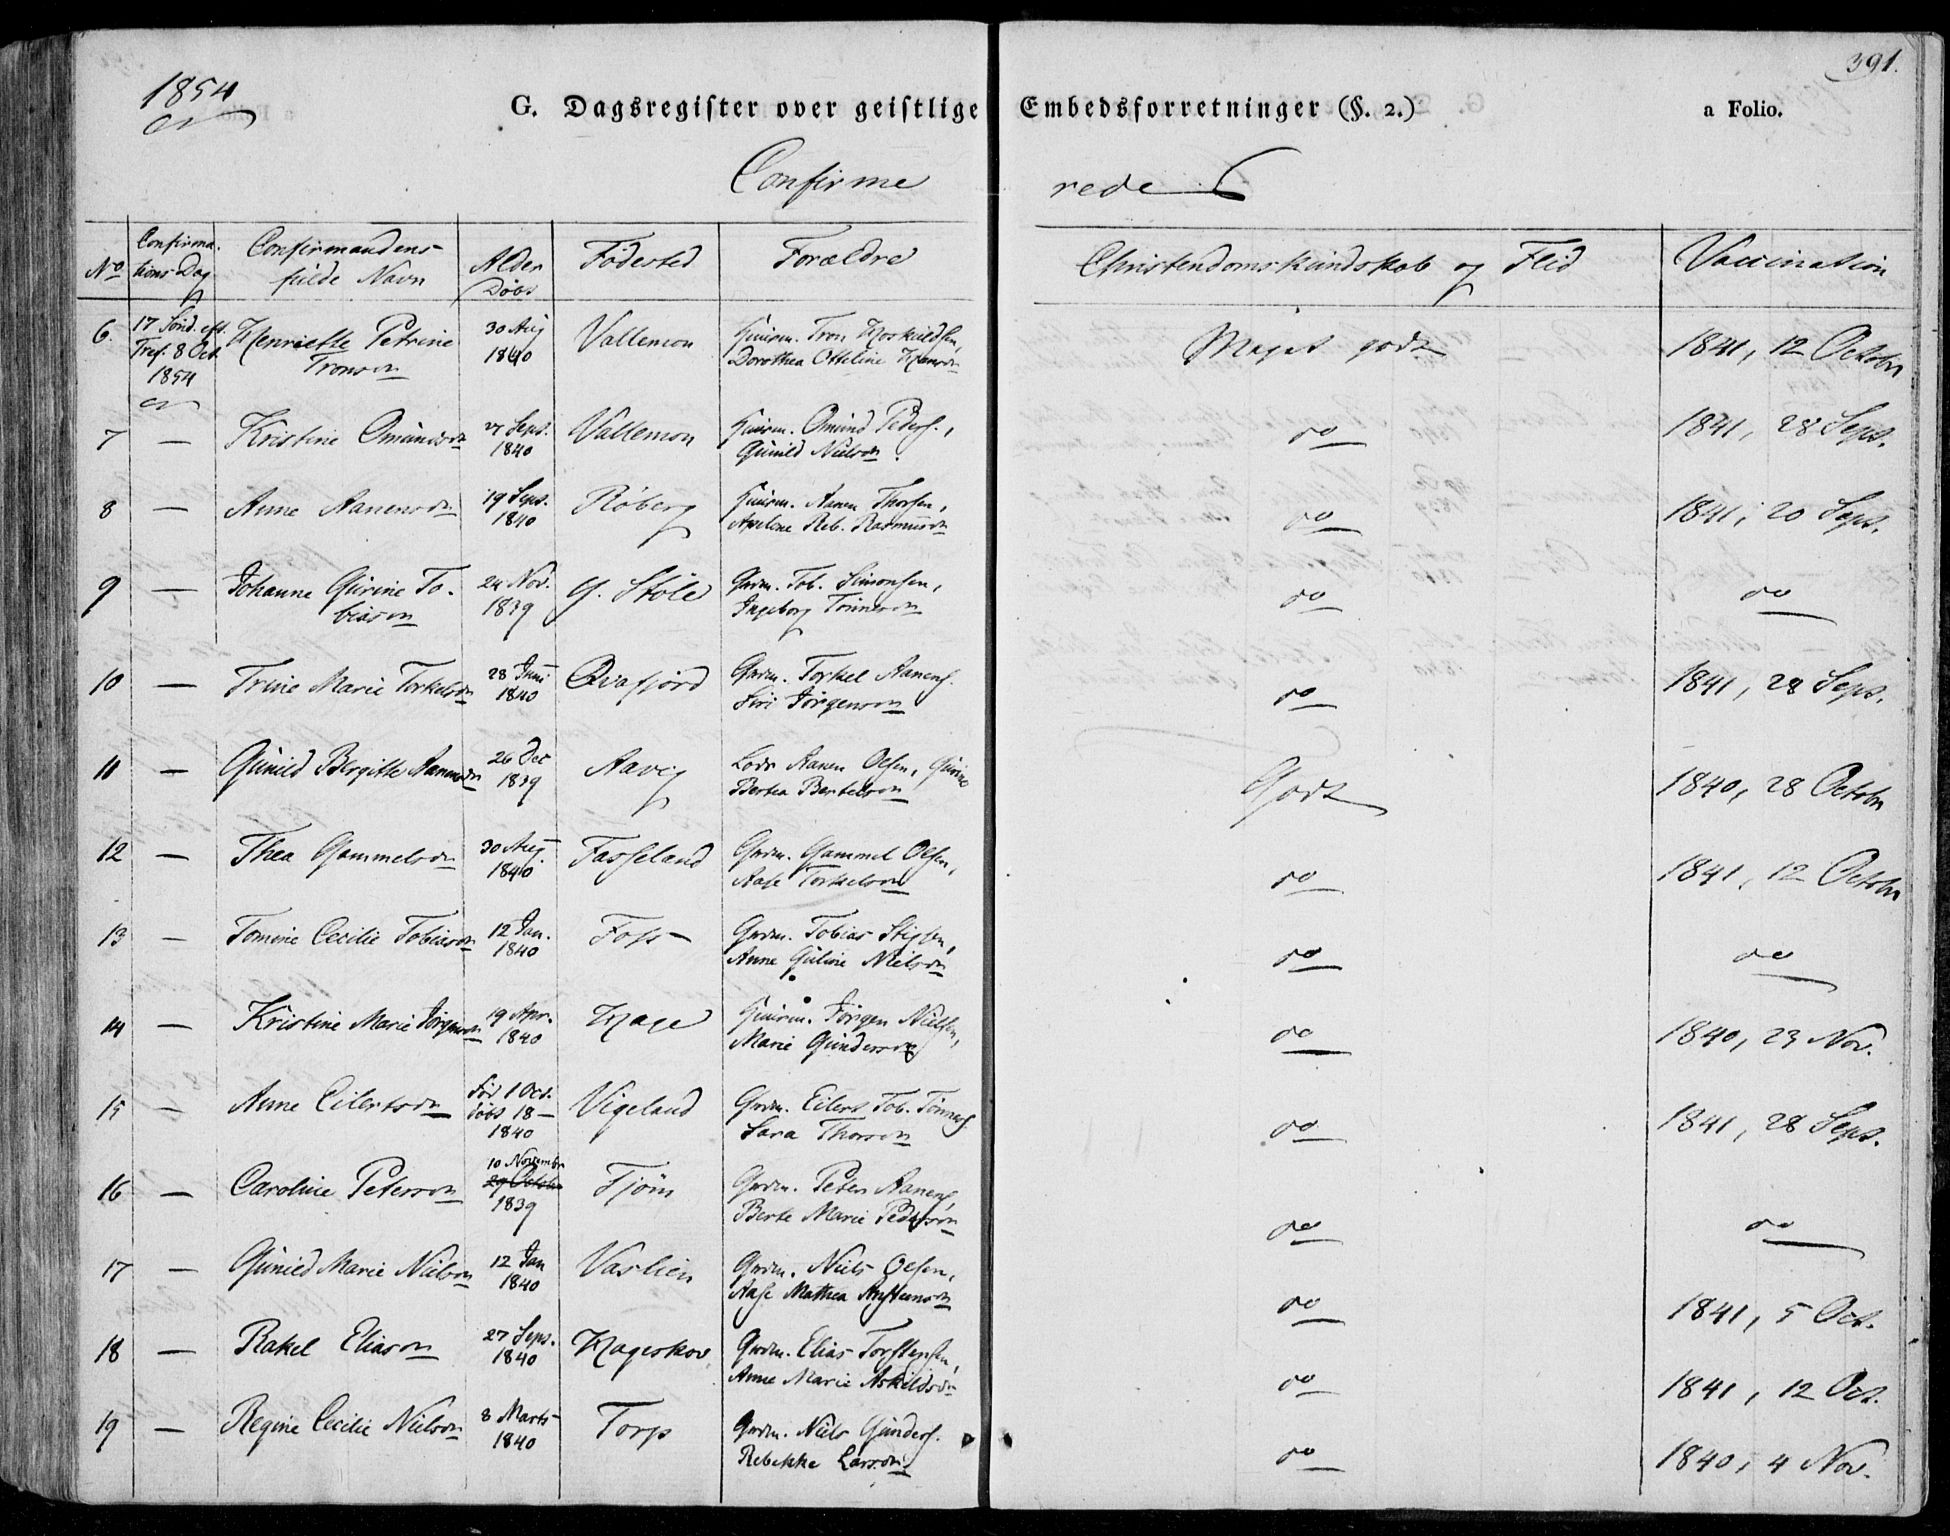 391.
1854
G. Dagsregister over geistlige Embedsforretninger (§. 2.) a Folio.
Confirmerede
No Confirmations Dag Confirmandens fulde Navn Alder Døbt Fødested Forældre Christendomskundskab og Flid Vaccination
6. 17 Sønd. eft. Tref. 8 Oct. 1854 Henriette Petrine Tronsen 30 Aug 1840 Vallemon Huusm. Tron Hoskuldsen, Dorothea Otteline Hansen Meget godt 1841, 12 Octobr
7 — Kristine Omundsen 27 Sept. 1840 Vallemon Huusm. Omund Peders., Gunild Nielsen. do 1841, 28 Sept.
8 — Anne Aanensen 19 Sept. 1840 Røberg Huusm. Aanen Thorsen, Axeline Reb. Rasmusen do 1841, 20 Sept.
9 — Johanne Gurine Tobiasen 24 Nov. 1839 G. Støle Grdm. Tob. Simonsen, Ingeborg Tønnesen do do
10 — Trine Marie Torkelsen 28 Juni 1840 Qvafjord Grdm. Torkel Aanens. Siri Jørgensen do 1841, 28 Sept.
11 — Gunild Bergitte Aanensen 26 Dec 1839 Aavig Lods Aanen Olsen, Gurine Bertea Bertelsen Godt 1840, 28 Octobr
12 — Thea Gammelsen 30 Aug. 1840 Fasseland Grdm. Gammel Olsen, Aase Torkelsen do 1841, 12 Octobr
13 — Tomine Cecilie Tobiasen 12 Jan. 1840 Foss Grdm. Tobias Stigsen, Anne Guline Nielsen do do
14 — Kristine Marie Jørgensen 19 Apr. 1840 Hage Huusm. Jörgen Nielsen, Marie Gundersen do 1840, 23 Nov.
15 — Anne Eilertsen Fød 1 Oct. døbt 18 — 1840 Vigeland Grdm. Eilert Tob. Tönnes. Sara Thorsen do 1841, 28 Sept.
16 — Caroline Petersen 10 Novembr 29 October 1839 Fjøm Grdm. Peter Aanens. Berte Marie Pedersen do do
17 — Gunild Marie Nielsen 12 Jan 1840 Vaslien Grdm. Niels Olsen, Aase Mathea Austensen do 1841, 5 Oct.
18 — Rakel Eliasen 27 Sept. 1840 Hageskov Grdm. Elias Torstensen, Anne Marie Askildsen do 1841, 12 Oct.
19 — Regine Cecilie Nielsen 8 Marts 1840 Torp Grdm. Niels Gunders. Rebekke Larsen do 1840, 4 Nov.